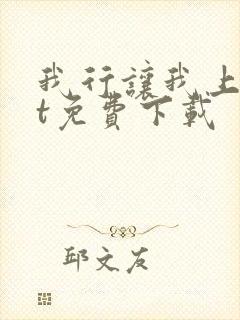 我行讓我上
t免費下載
邱文友